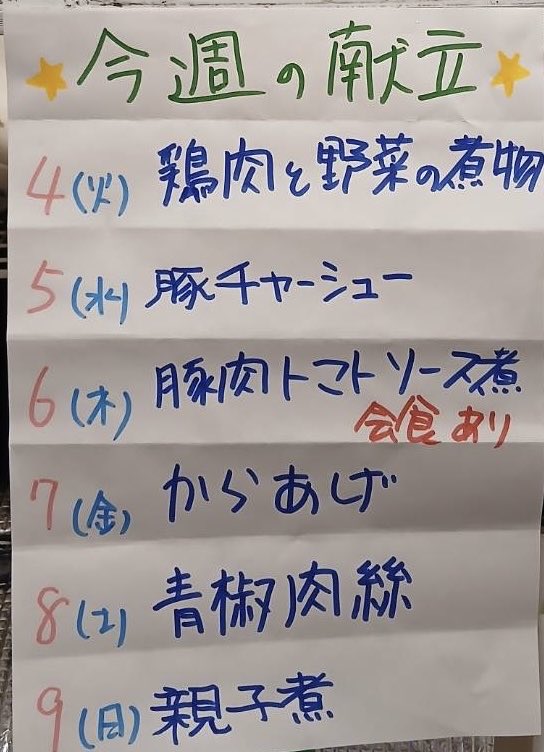 今週の献立
4(火) 鶏肉と野菜の煮物
5(水) 豚チャーシュー
6(木) 豚肉トマトソース煮
会食あり
7(金) からあげ
8(土) 青椒肉絲
9(日) 親子煮